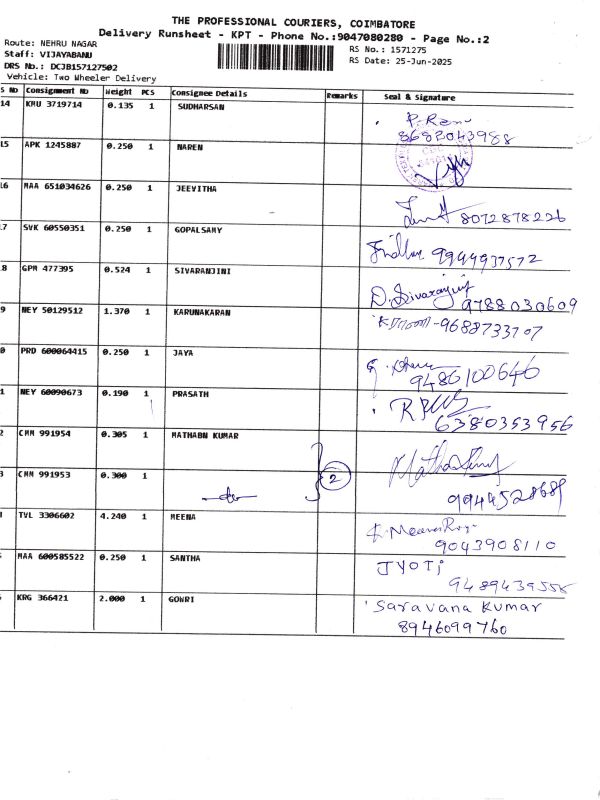 THE PROFESSIONAL COURIERS, COIMBATORE
Delivery Runsheet - KPT - Phone No.:9047080280 - Page No.:2
Route: NEHRU NAGAR
RS No.: 1571275
Staff: VIJAYABANU
RS Date: 25-Jun-2025
DRS No.: DCJB157127502
Vehicle: Two Wheeler Delivery
S No Consignment No Weight PCS Consignee Details Remarks Seal & Signature
14 KMU 3719714 0.135 1 SUDHARSAN
8682043988
15 APK 1245887 0.250 1 NAREN
16 MAA 651034626 0.250 1 JEEVITHA
8072878226
17 SVK 60550351 0.250 1 GOPALSAMY
9944937572
18 GPM 477395 0.524 1 SIVARANJINI
D. Sivaranjini
9788030609
9 NEY 50129512 1.370 1 KARUNAKARAN
9688733707
0 PRD 600064415 0.250 1 JAYA
9486100646
1 NEY 60090673 0.190 1 PRASATH
6380353956
2 CMM 991954 0.305 1 MATHABN KUMAR
3 CMM 991953 0.300 1 2
TVL 3306602 4.240 1 MEENA
9043908110
MAA 600585522 0.250 1 SANTHA
JYOTi
9489439558
KRG 366421 2.000 1 GOWRI
Saravana Kumar
8946099760